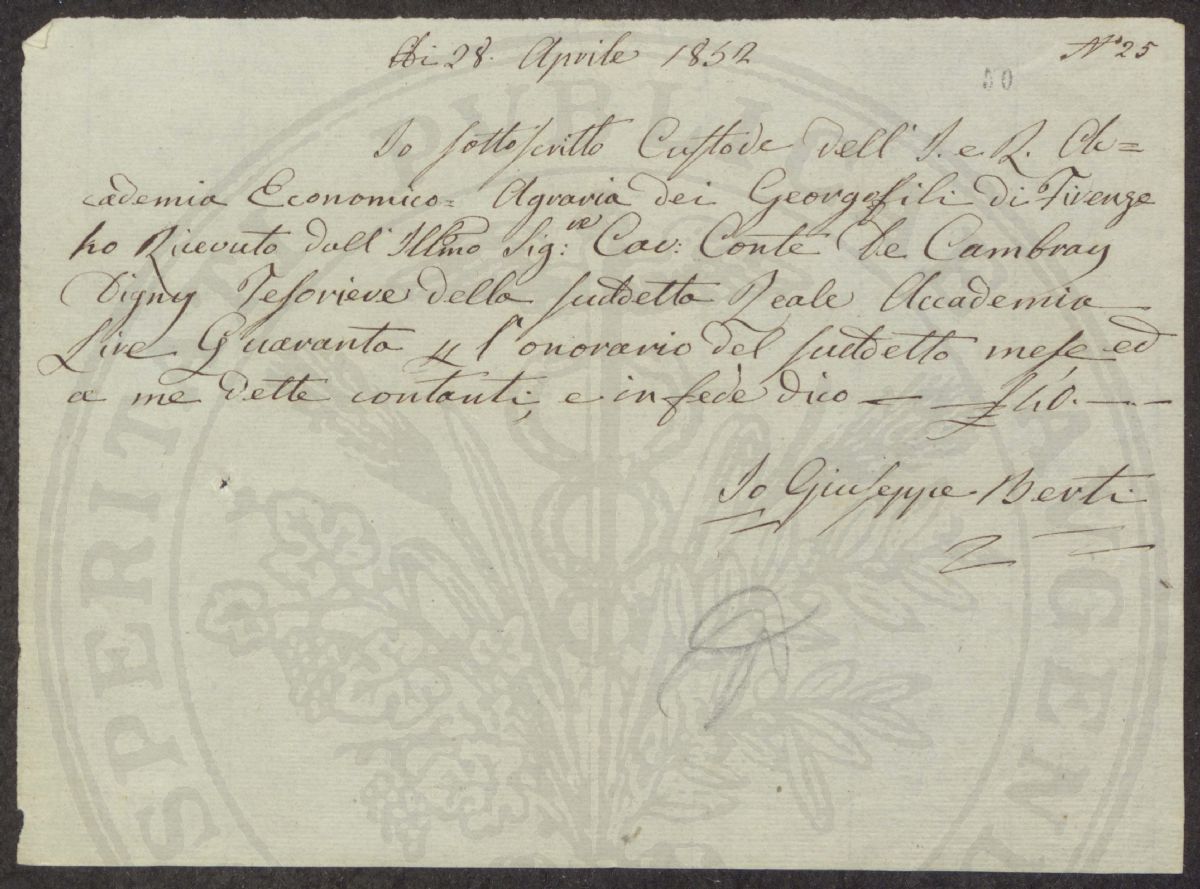 Adi 28. Aprile 1852
N° 25
Io sottoscritto Custode dell' I. e R. Ac=
cademia Economico= Agraria dei Georgofili di Firenze
ho Ricevuto dall' Illmo Sig:re Cav: Conte De Cambray
Digny Tesoriere della suddetta Reale Accademia
Lire Quaranta p l'onorario del suddetto mese ed
a me dette contanti, e in fede dico — £ 40. —
Io Giuseppe Berti
PROSPERITATI PUBLICAE AUGENDAE